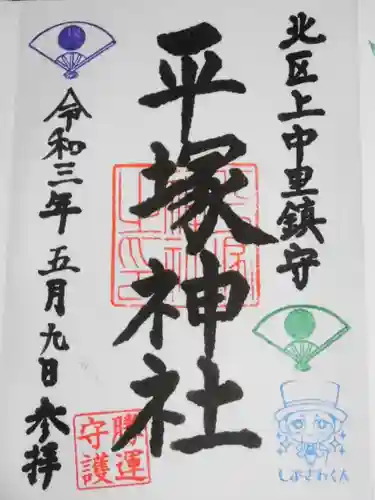 北区上中里鎮守
平塚神社
令和三年五月九日参拝
勝運
守護
しぶさわくん